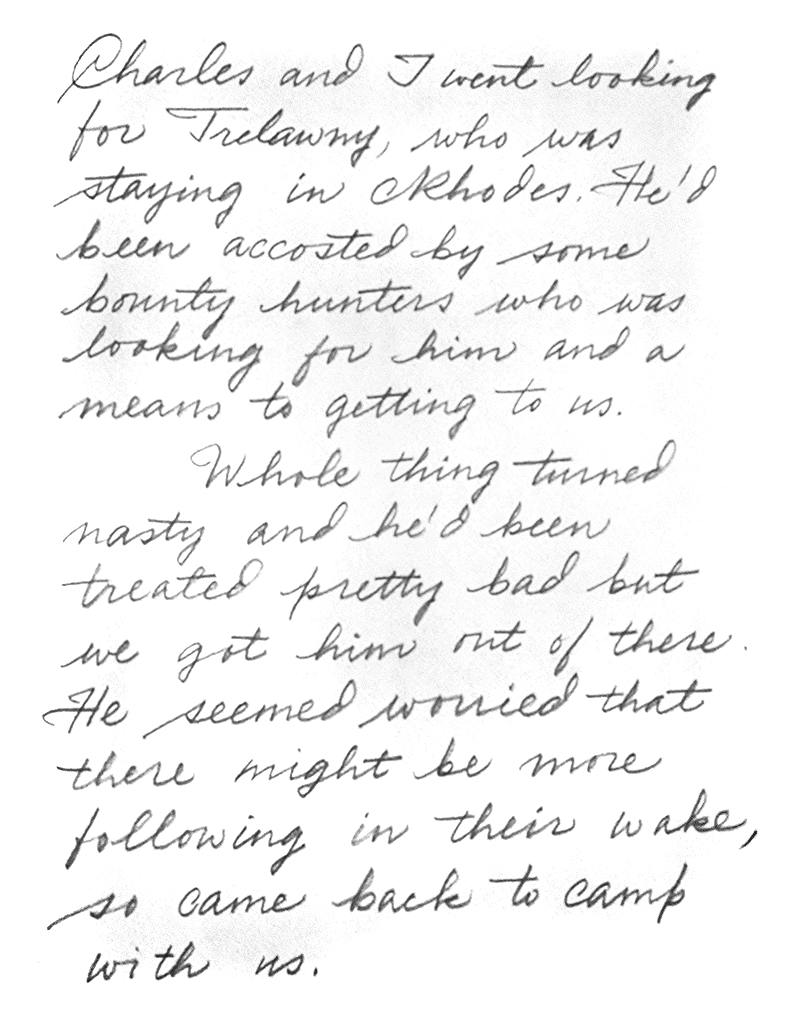 Charles and I went looking
for Trelawny, who was
staying in Rhodes. He'd
been accosted by some
bounty hunters who was
looking for him and a
means to getting to us.
Whole thing turned
nasty and he'd been
treated pretty bad but
we got him out of there.
He seemed worried that
there might be more
following in their wake,
so came back to camp
with us.